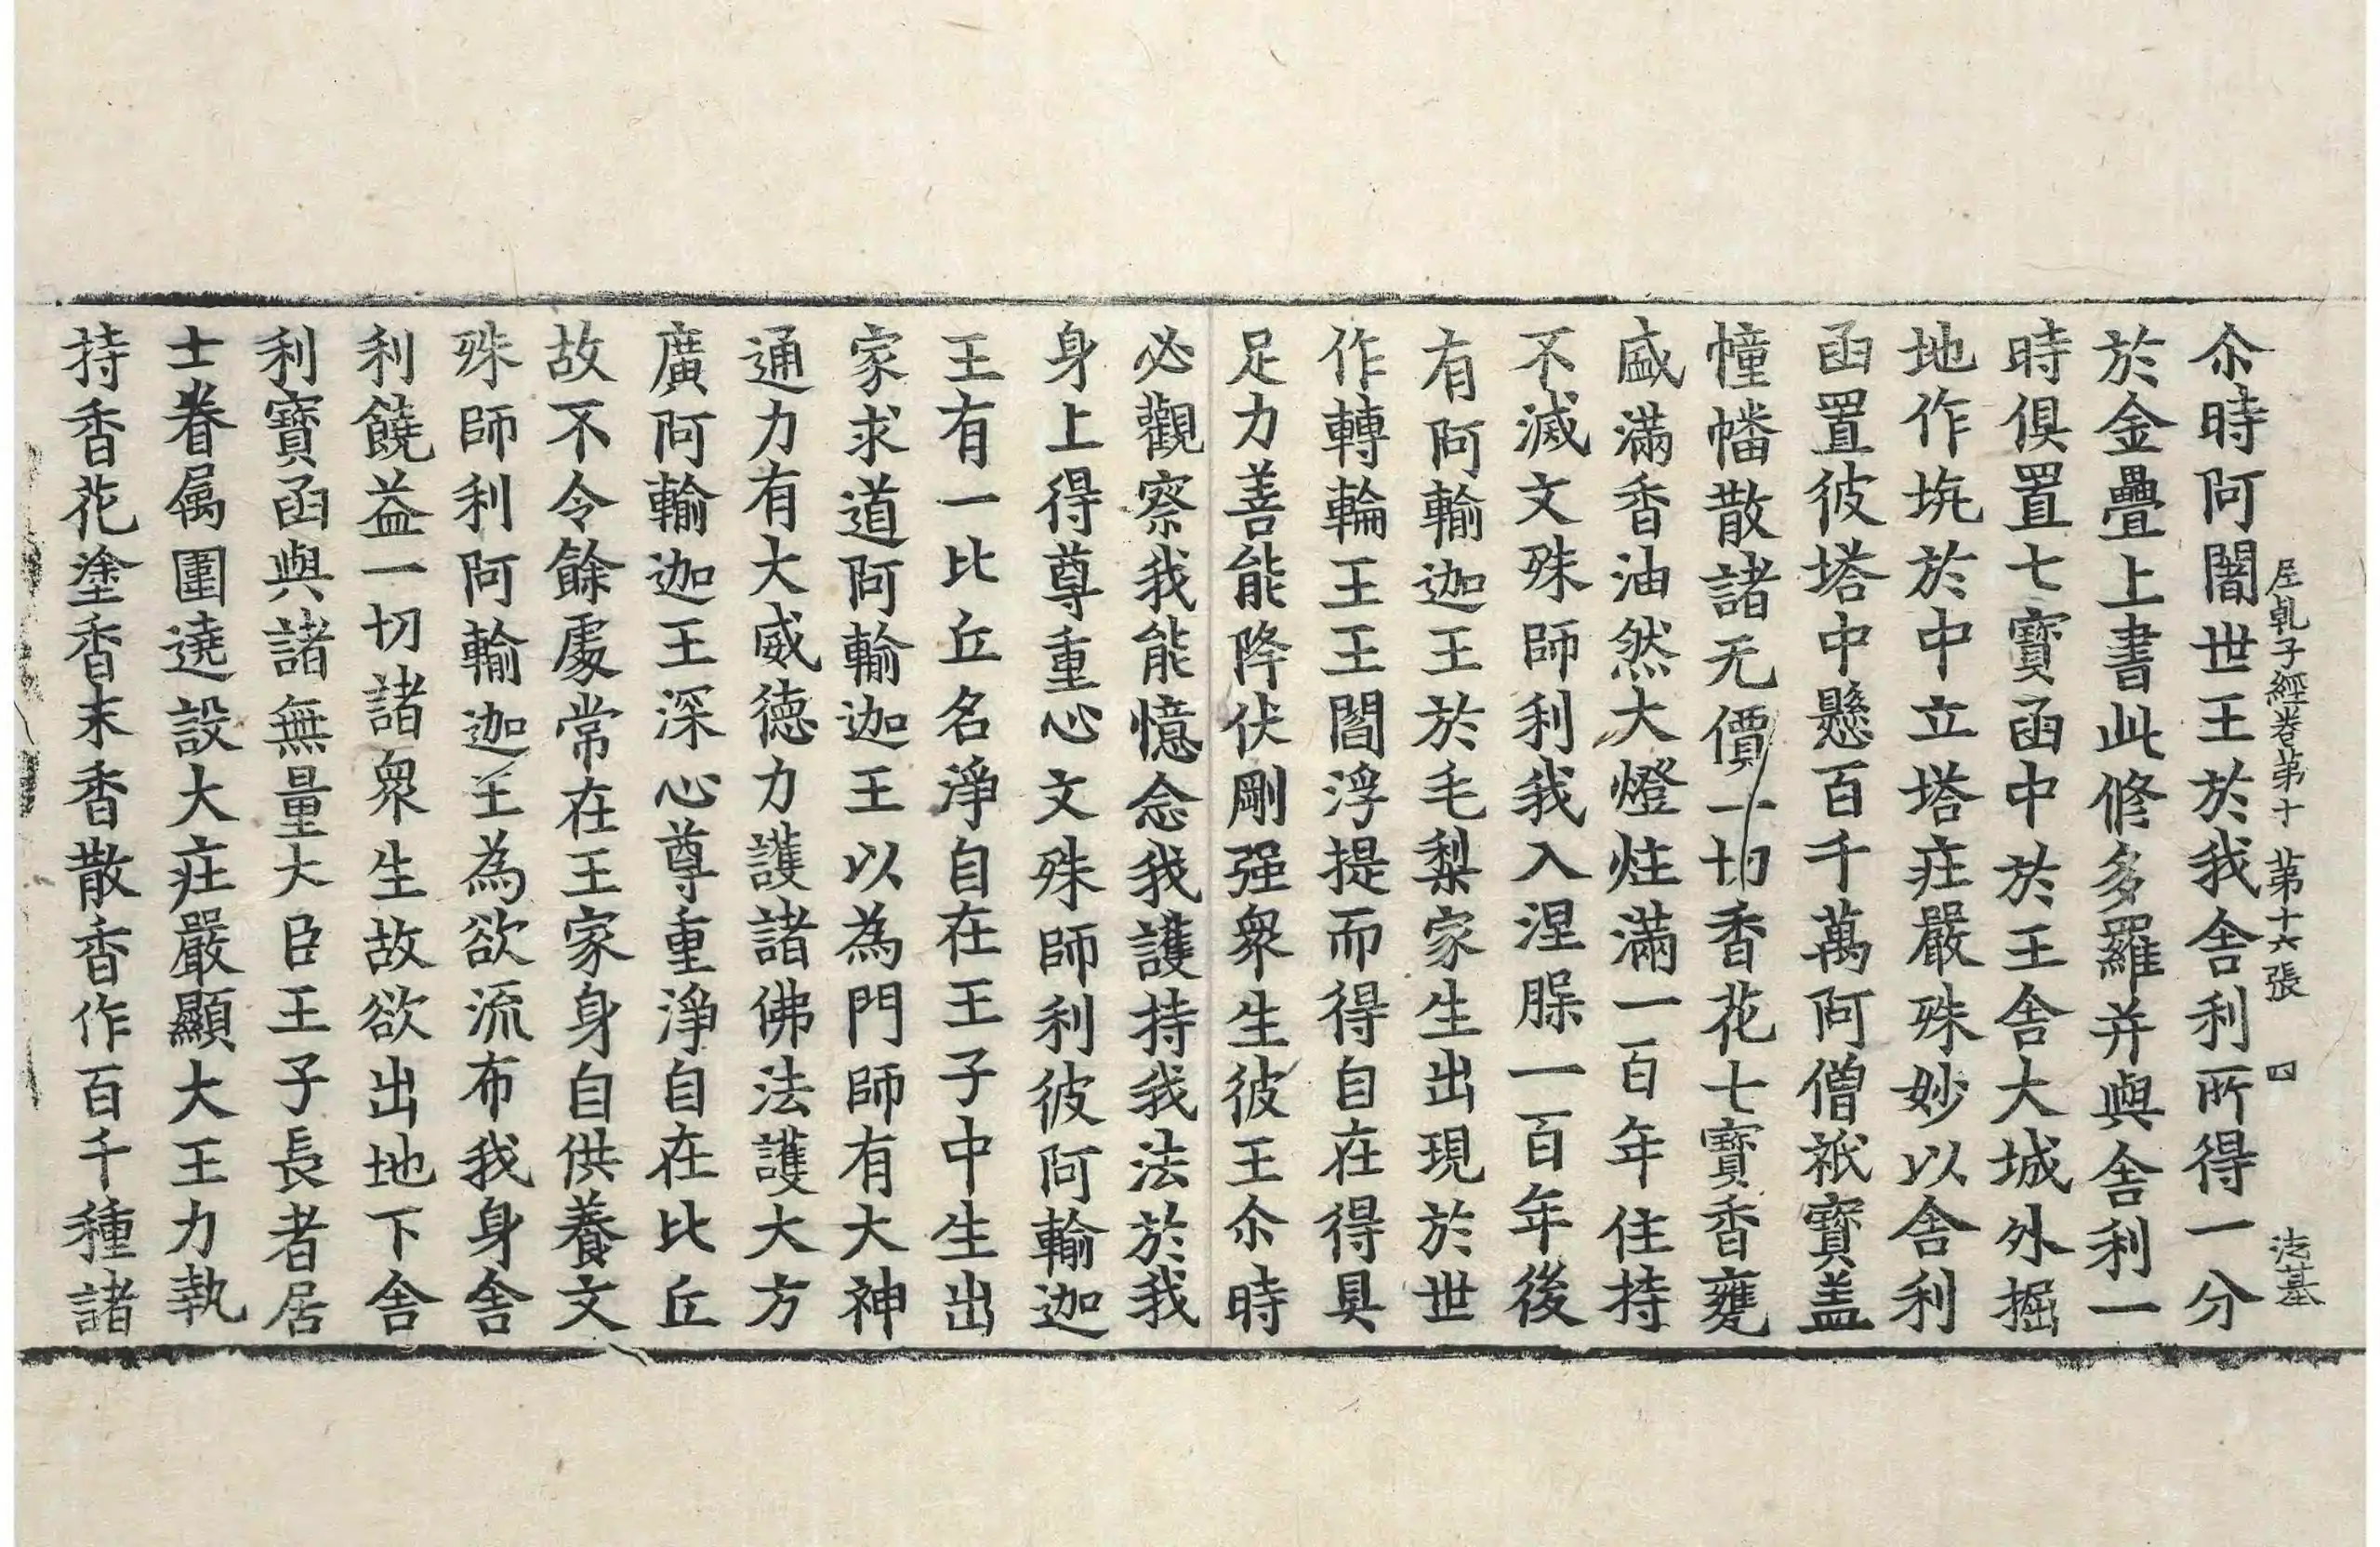 尒時阿闍世王於我舍利所得一分
𡰱乹子經卷第十　苐十六張　四　法基
於金疊上書此修多羅并與舍利一
時俱置七寶函中於王舍大城外掘
地作坑於中立塔莊嚴殊妙以舍利
函置彼塔中懸百千萬阿僧祇寶盖
幢幡散諸无價一切香花七寶香甕
盛滿香油然大燈炷滿一百年住持
不滅文殊師利我入涅槃一百年後
有阿輸迦王於毛梨家生出現於世
作轉輪王王閻浮提而得自在得具
足力善能降伏剛强衆生彼王尒時
必觀察我能憶念我護持我法於我
身上得尊重心文殊師利彼阿輸迦
王有一比丘名淨自在王子中生出
家求道阿輸迦王以為門師有大神
通力有大威德力護諸佛法護大方
廣阿輸迦王深心尊重淨自在比丘
故不令餘處常在王家身自供養文
殊師利阿輸迦王為欲流布我身舍
利饒益一切諸衆生故欲出地下舍
利寶函與諸無量大臣王子長者居
士眷属圍遶設大莊嚴顯大王力執
持香花塗香末香散香作百千種諸